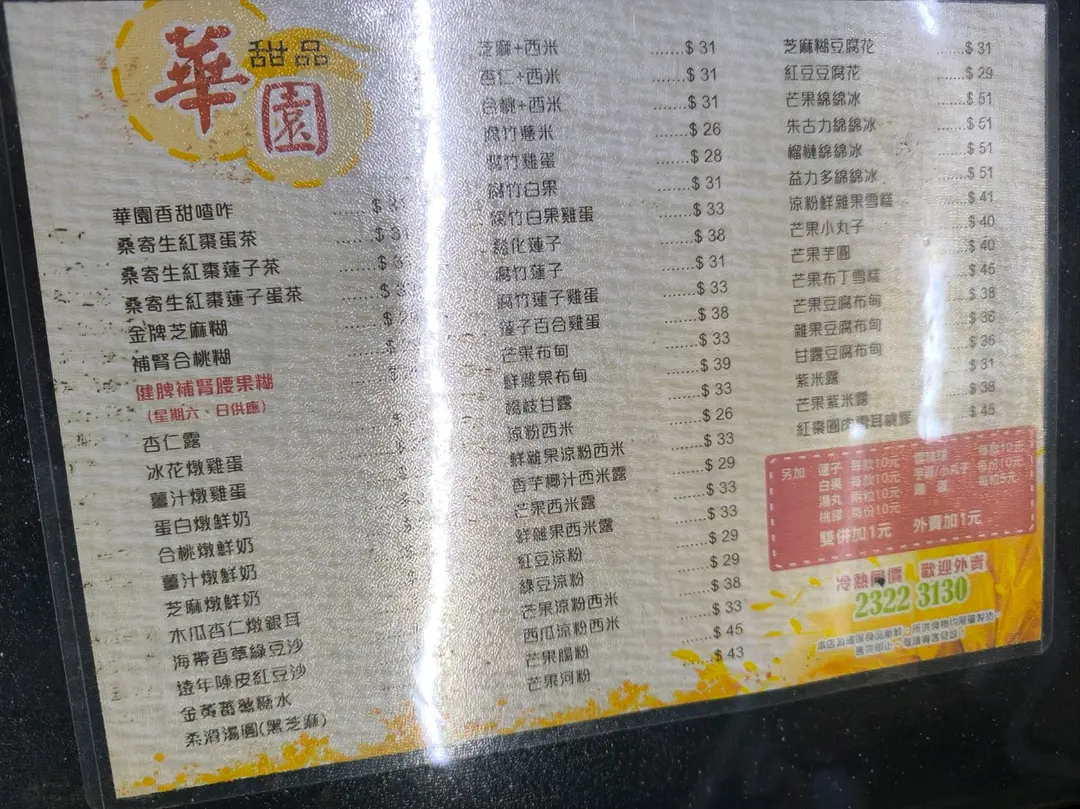 華園
甜品
華園香甜喳咋
桑寄生紅棗蛋茶
桑寄生紅棗蓮子茶
桑寄生紅棗蓮子蛋茶
金牌芝麻糊
補腎合桃糊
健脾補腎腰果糊
(星期六、日供應)
杏仁露
冰花燉雞蛋
薑汁燉雞蛋
蛋白燉鮮奶
合桃燉鮮奶
薑汁燉鮮奶
芝麻燉鮮奶
木瓜杏仁燉銀耳
海帶香草綠豆沙
遠年陳皮紅豆沙
金黃蕃薯糖水
柔滑湯圓(黑芝麻)
芝麻+西米 .......$ 31
杏仁+西米 .......$ 31
合桃+西米 .......$ 31
腐竹薏米 .......$ 26
腐竹雞蛋 .......$ 28
腐竹白果 .......$ 31
腐竹白果雞蛋 .......$ 33
鬆化蓮子 .......$ 38
腐竹蓮子 .......$ 31
腐竹蓮子雞蛋 .......$ 33
蓮子百合雞蛋 .......$ 38
芒果布甸 .......$ 33
鮮雜果布甸 .......$ 39
楊枝甘露 .......$ 33
涼粉西米 .......$ 26
鮮雜果涼粉西米 .......$ 33
香芋椰汁西米露 .......$ 29
芒果西米露 .......$ 33
鮮雜果西米露 .......$ 33
紅豆涼粉 .......$ 29
綠豆涼粉 .......$ 29
芒果涼粉西米 .......$ 38
西瓜涼粉西米 .......$ 33
芒果腸粉 .......$ 45
芒果河粉 .......$ 43
芝麻糊豆腐花 .......$ 31
紅豆豆腐花 .......$ 29
芒果綿綿冰 .......$ 51
朱古力綿綿冰 .......$ 51
榴槤綿綿冰 .......$ 51
益力多綿綿冰 .......$ 51
涼粉鮮雜果雪糕 .......$ 41
芒果小丸子 .......$ 40
芒果芋圓 .......$ 40
芒果布丁雪糕 .......$ 45
芒果豆腐布甸 .......$ 38
雜果豆腐布甸 .......$ 36
甘露豆腐布甸 .......$ 36
紫米露 .......$ 31
芒果紫米露 .......$ 38
紅棗圓肉雪耳桃膠 .......$ 45
另加 蓮子 每款10元 雪糕球 每款10元
白果 每款10元 芋圓/小丸子 每份10元
湯丸 兩粒10元 雞蛋 每粒5元
桃膠 每份10元
雙併加1元 外賣加1元
冷熱同價 歡迎外賣
2322 3130